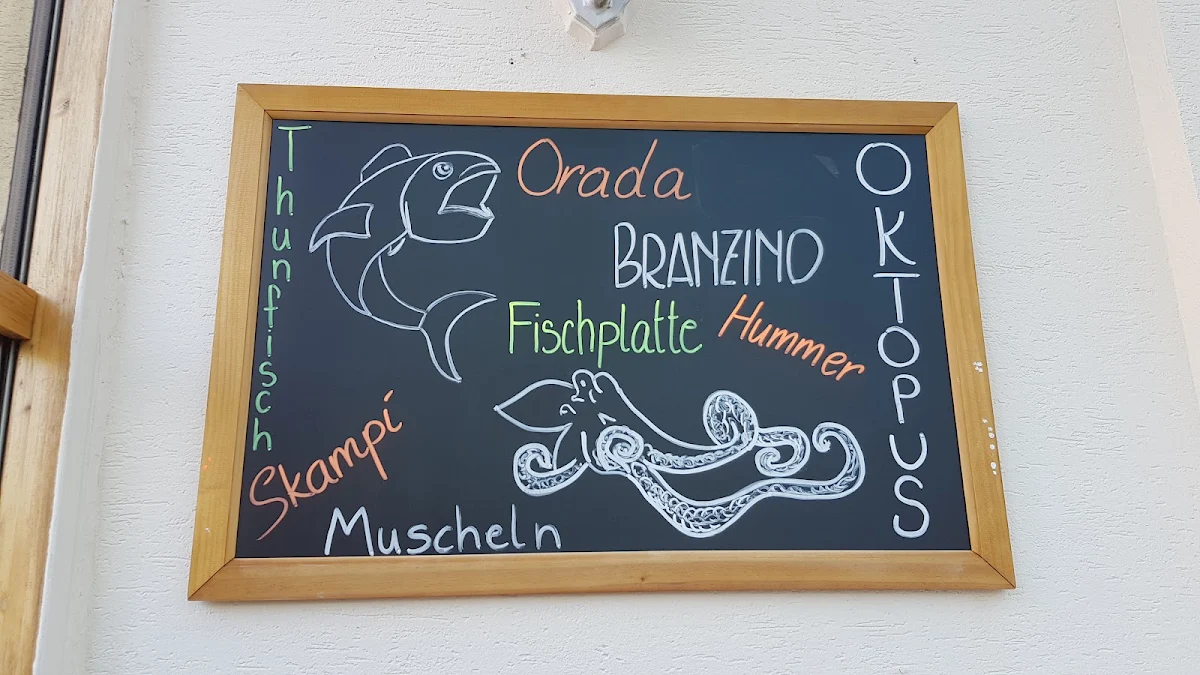 Thunfisch
Orada
BRANZINO
Fischplatte
Hummer
OKTOPUS
Skampi
Muscheln